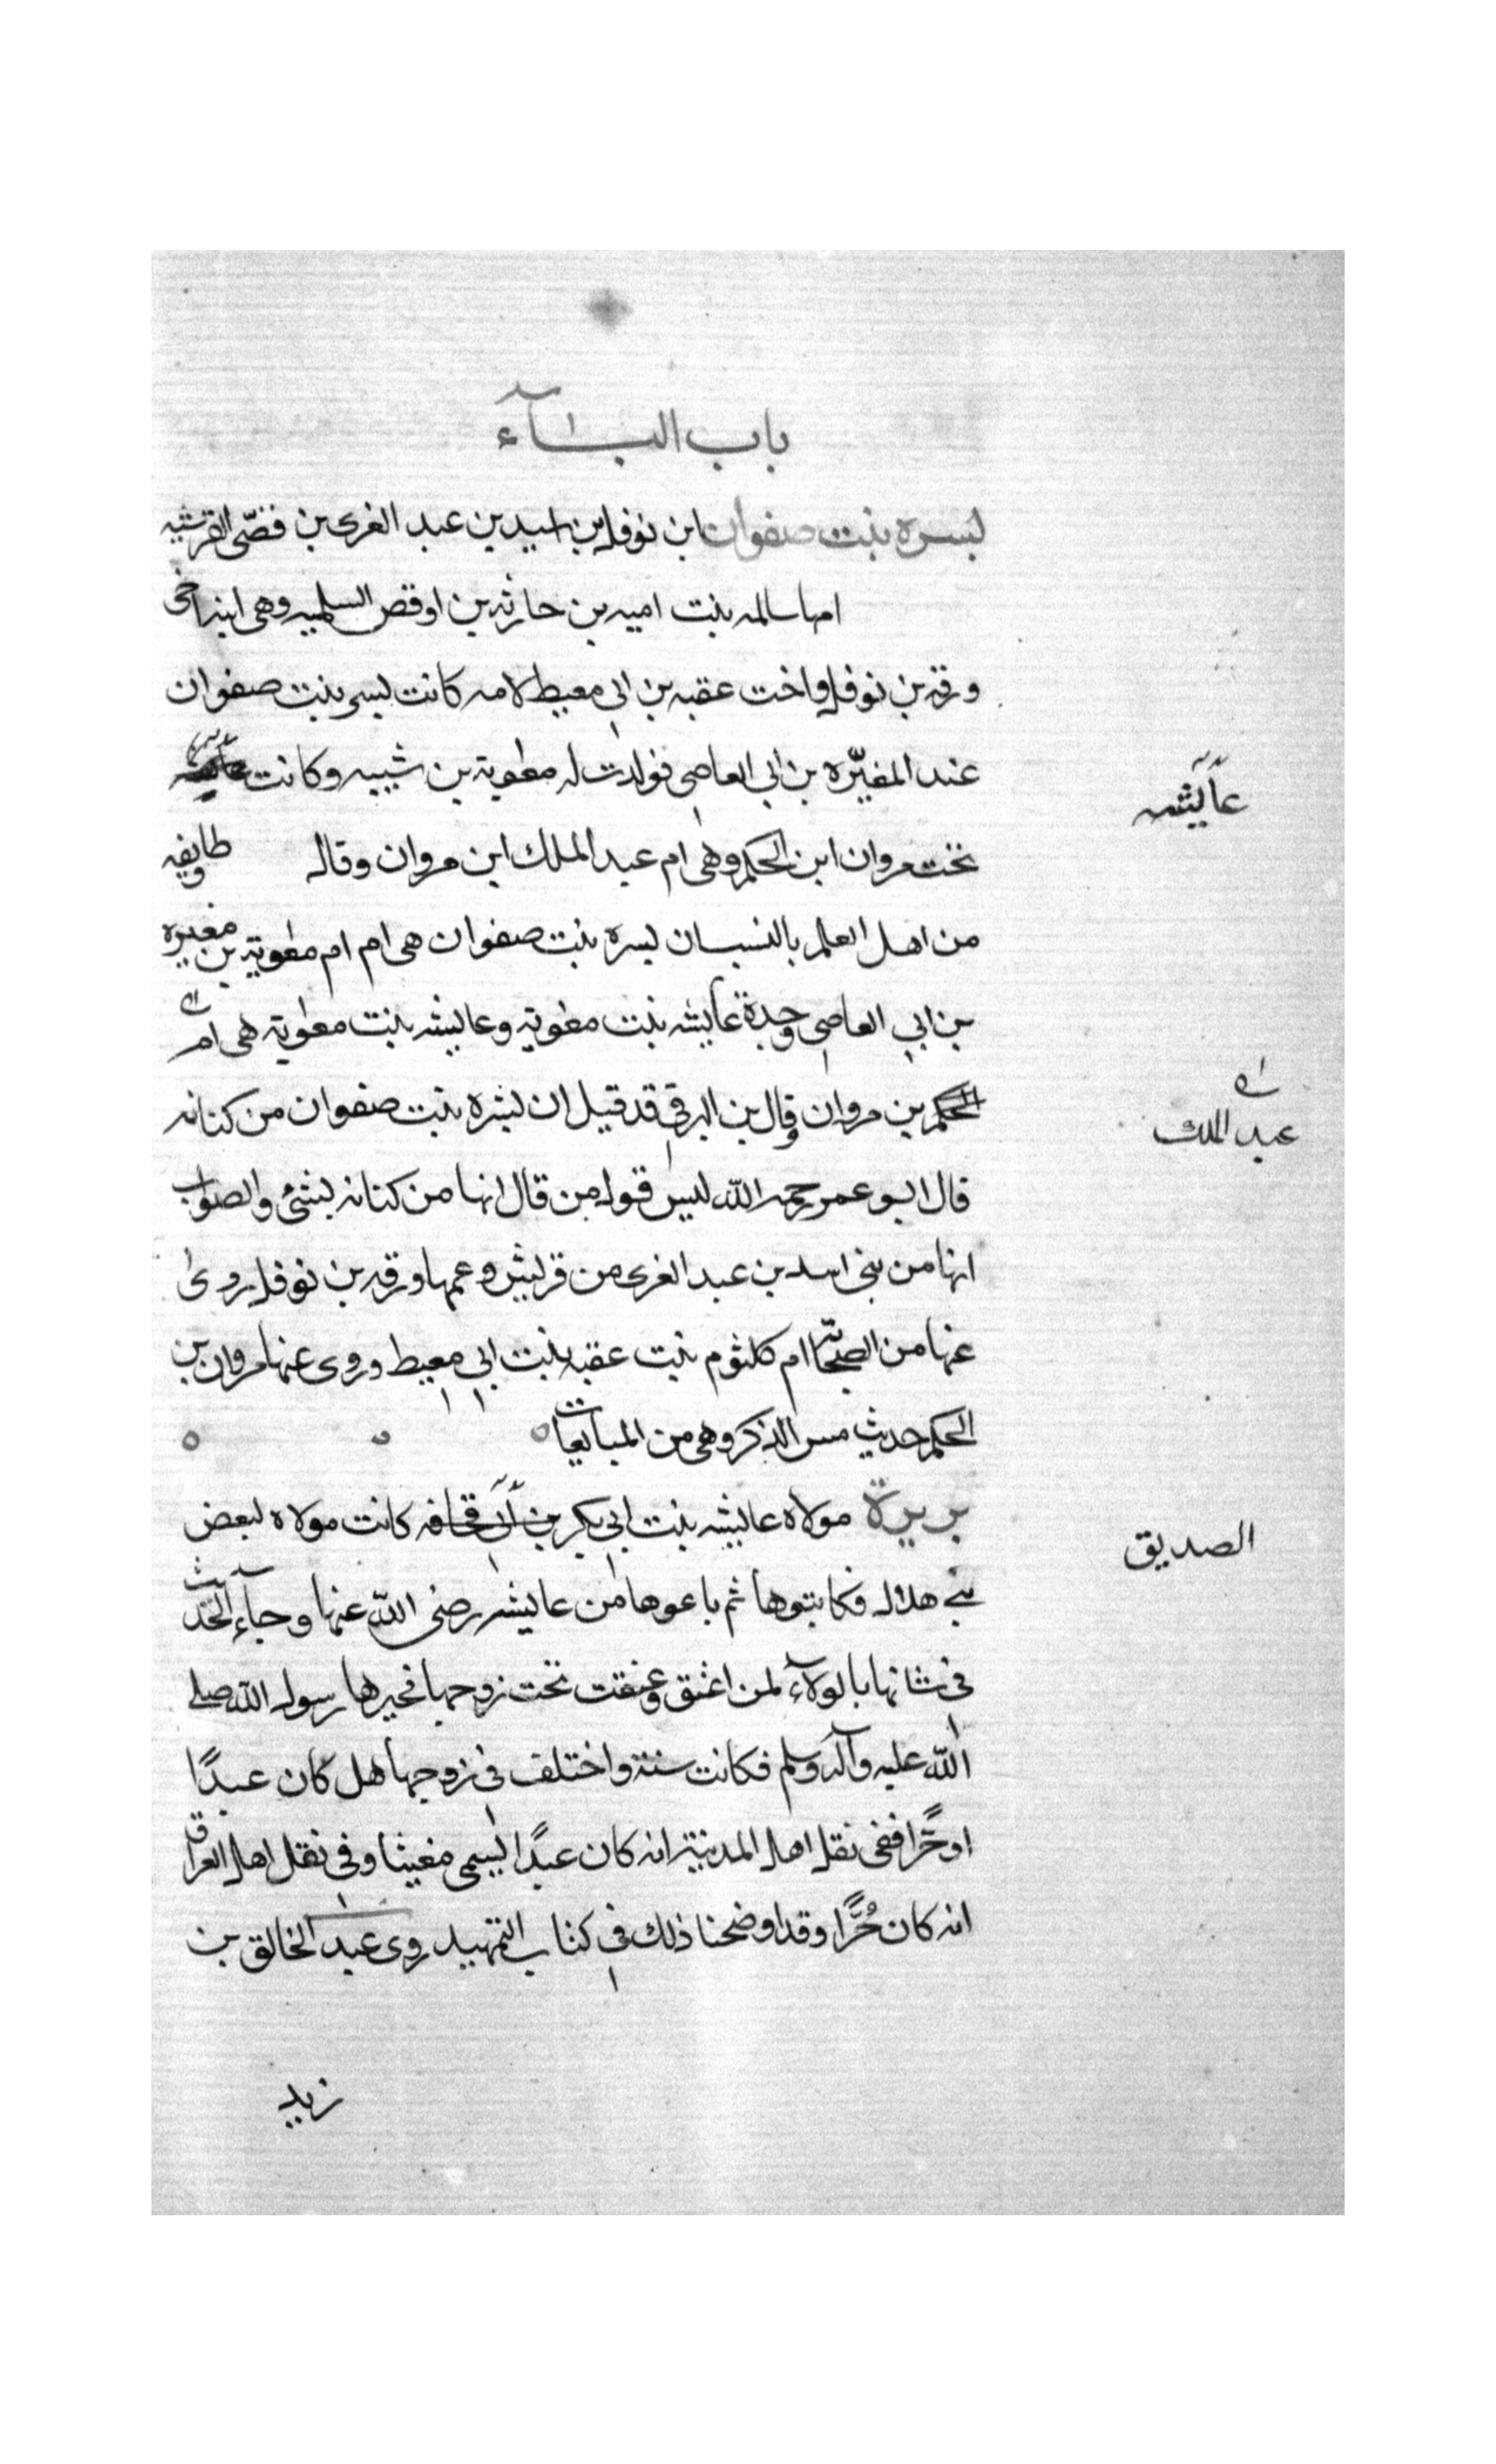 باب البآء
بسره بنت صفوان ابن نوفل بن اسيد بن عبد الغرى بن قصّى القرشيه
امها سالمه بنت اميه بن حارثه بن اوقص السلميه وهى ابنه اخى
ورقه بن نوفل واخت عقبه بن ابى معيط لامه كانت بسره بنت صفوان
عند المغيّره بن ابى العاصى فولدت له معويه بن شيبه وكانت
عآئشه
تحت مروان ابن الحكم وهى ام عبد الملك ابن مروان وقال طايفه
من اهل العلم بالنسبان بسره بنت صفوان هى ام ام معوية بن مغيره
بن ابى العاصى وجدة عايشه بنت معوية وعايشه بنت معوية هى ام
عبد الملك
الحكم بن مروان وقال بن البرقى قد قيل ان بشره بنت صفوان من كنانه
قال ابو عمر رحمه الله ليس قول من قال انها من كنانه بشئ والصواب
انها من بنى اسد بن عبد الغرى من قريش وعمها ورقه بن نوفل روى
عنها من الصحابة ام كلثوم بنت عقبه بنت ابى معيط وروى عنها مروان بن
الحكم حديث مس الذكر وهى من المبايعات
بريرة مولاه عايشه بنت ابى بكر بن ابى قحافه كانت مولاه لبعض
الصديق
بنى هلال فكاتبوها ثم باعوها من عايشه رضى الله عنها وجاء الحديث
فى شانها بالولآء لمن اعتق وعتقت تحت زوجها فخيرها رسول الله صلى
الله عليه وآله وسلم فكانت سنة واختلف فى زوجها هل كان عبدًا
او حرًّا ففى نقل اهل المدينة انه كان عبدًا يسمى مغيثا وفى نقل اهل العراق
انه كان حُرًّا وقد اوضحنا ذلك فى كتاب التمهيد روى عبد الخالق بن
زيد